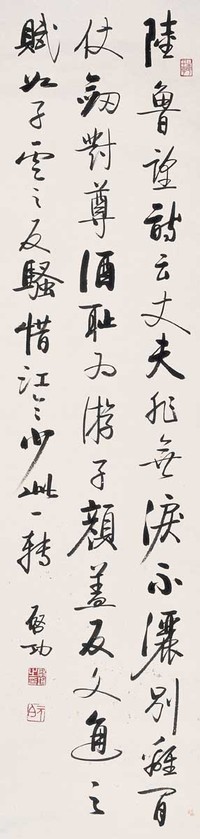 陸魯望詩云丈夫非無淚不灑別離間
仗劍對尊酒耻為游子顏蓋反文通之
賦如子雲之反騷惜江令少此一轉
啟功